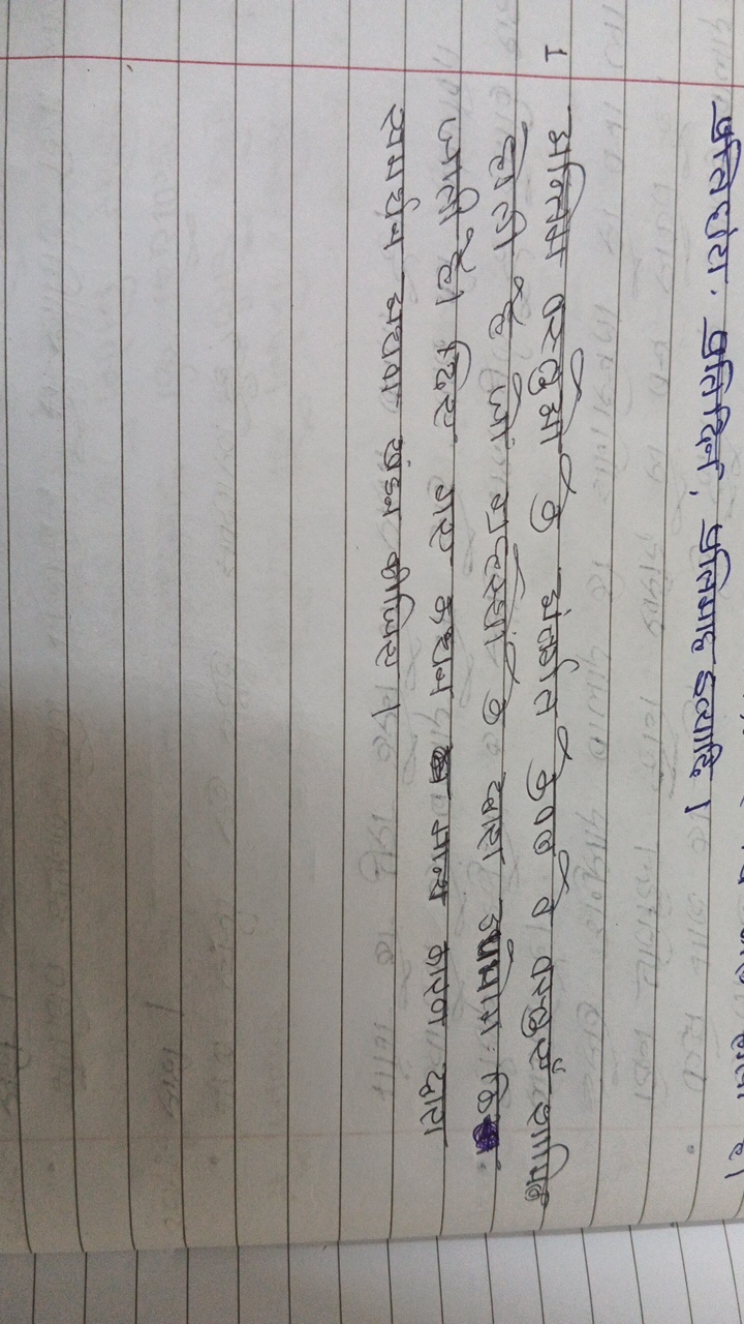 होता है।
प्रतिशेध: प्रतिदिन, प्रतिमाह इत्यादि।
1 अन्तिम वस्तुओं के अंतर्गत केवल वे वस्तुएँ शामिल
होती है जो गृहस्थों के द्वारा उपभोग कि
जाती है। दिए गए कथन का मान्य कारण द्वारा
समर्थन अथवा खंडन कीजिए।